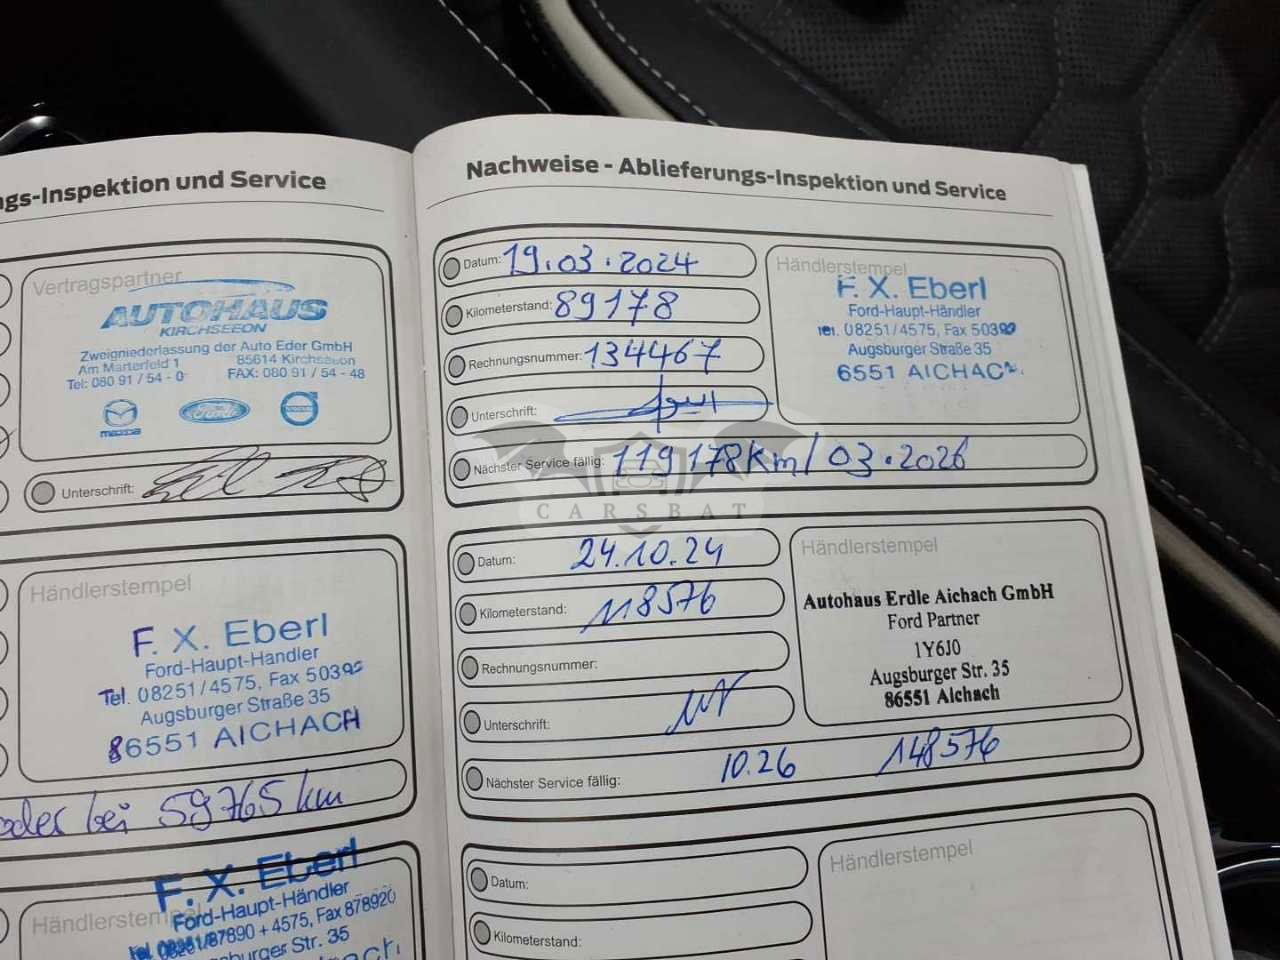 ngs-Inspektion und Service
Vertragspartner
AUTOHAUS
KIRCHSEEON
Zweigniederlassung der Auto Eder GmbH
Am Marterfeld 1 85614 Kirchseeon
Tel: 080 91 / 54 - 0 FAX: 080 91 / 54 - 48
mazda Ford
Unterschrift:
Händlerstempel
F. X. Eberl
Ford-Haupt-Händler
Tel. 08251/4575, Fax 50392
Augsburger Straße 35
86551 AICHACH
oder bei 59765 km
Händlerstempel
F. X. Eberl
Ford-Haupt-Händler
Tel. 08251/87890 + 4575, Fax 878920
Augsburger Str. 35
Nachweise - Ablieferungs-Inspektion und Service
Datum: 19.03.2024
Kilometerstand: 89178
Rechnungsnummer: 134467
Unterschrift:
Nächster Service fällig: 119178km/03.2026
Händlerstempel
F. X. Eberl
Ford-Haupt-Händler
Tel. 08251/4575, Fax 50392
Augsburger Straße 35
6551 AICHAC
CARSBAT
Datum: 24.10.24
Kilometerstand: 118576
Rechnungsnummer:
Unterschrift:
Nächster Service fällig: 10.26 148576
Händlerstempel
Autohaus Erdle Aichach GmbH
Ford Partner
1Y6J0
Augsburger Str. 35
86551 Aichach
Datum:
Kilometerstand:
Händlerstempel